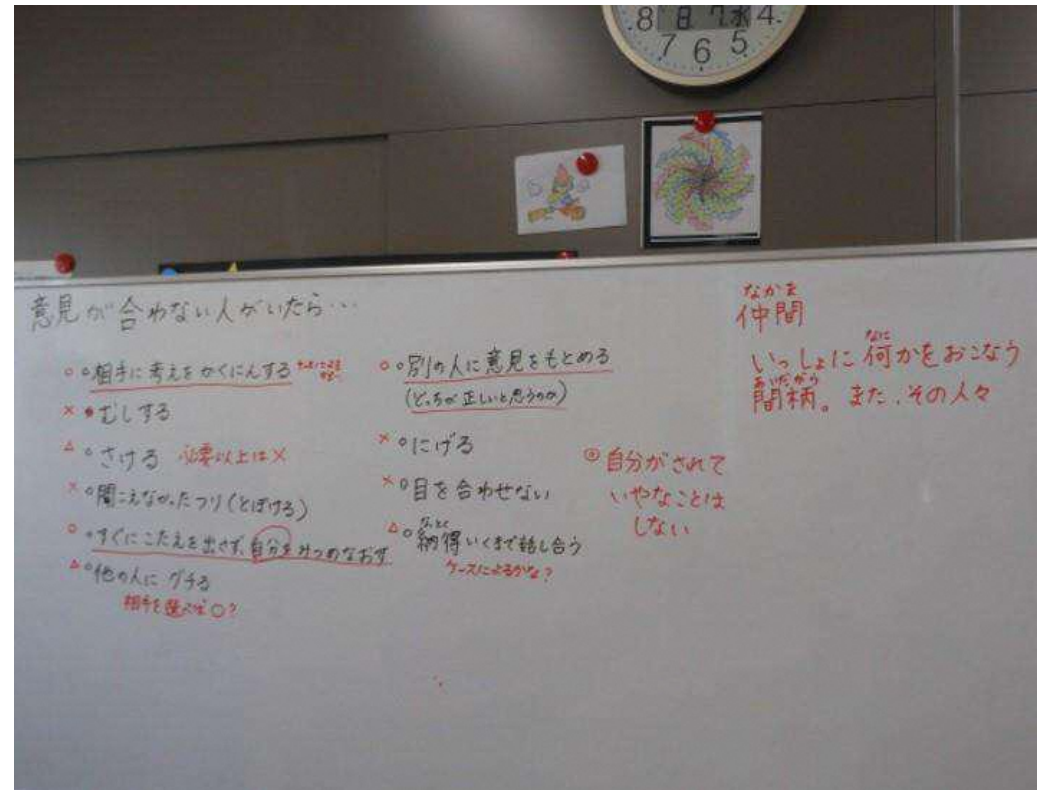 8 日 7. 水 4
7 6 5
意見が合わない人がいたら…
○ ○相手に考えをかくにんする
× ●むしする
△ ○さける 必要以上は×
× ○聞こえなかったつり(とぼける)
○ ○すぐにこたえを出さず、自分をみつめなおす
△ ○他の人にグチる
相手を選べば○?
○ ○別の人に意見をもとめる
(どっちが正しいと思うのか)
× ○にげる
× ○目を合わせない
なっとく
△ ○納得いくまで話し合う
ケースによるかな?
◎自分がされて
いやなことは
しない
なかま
仲間
なに
いっしょに何かをおこなう
あいだがら
間柄。また、その人々